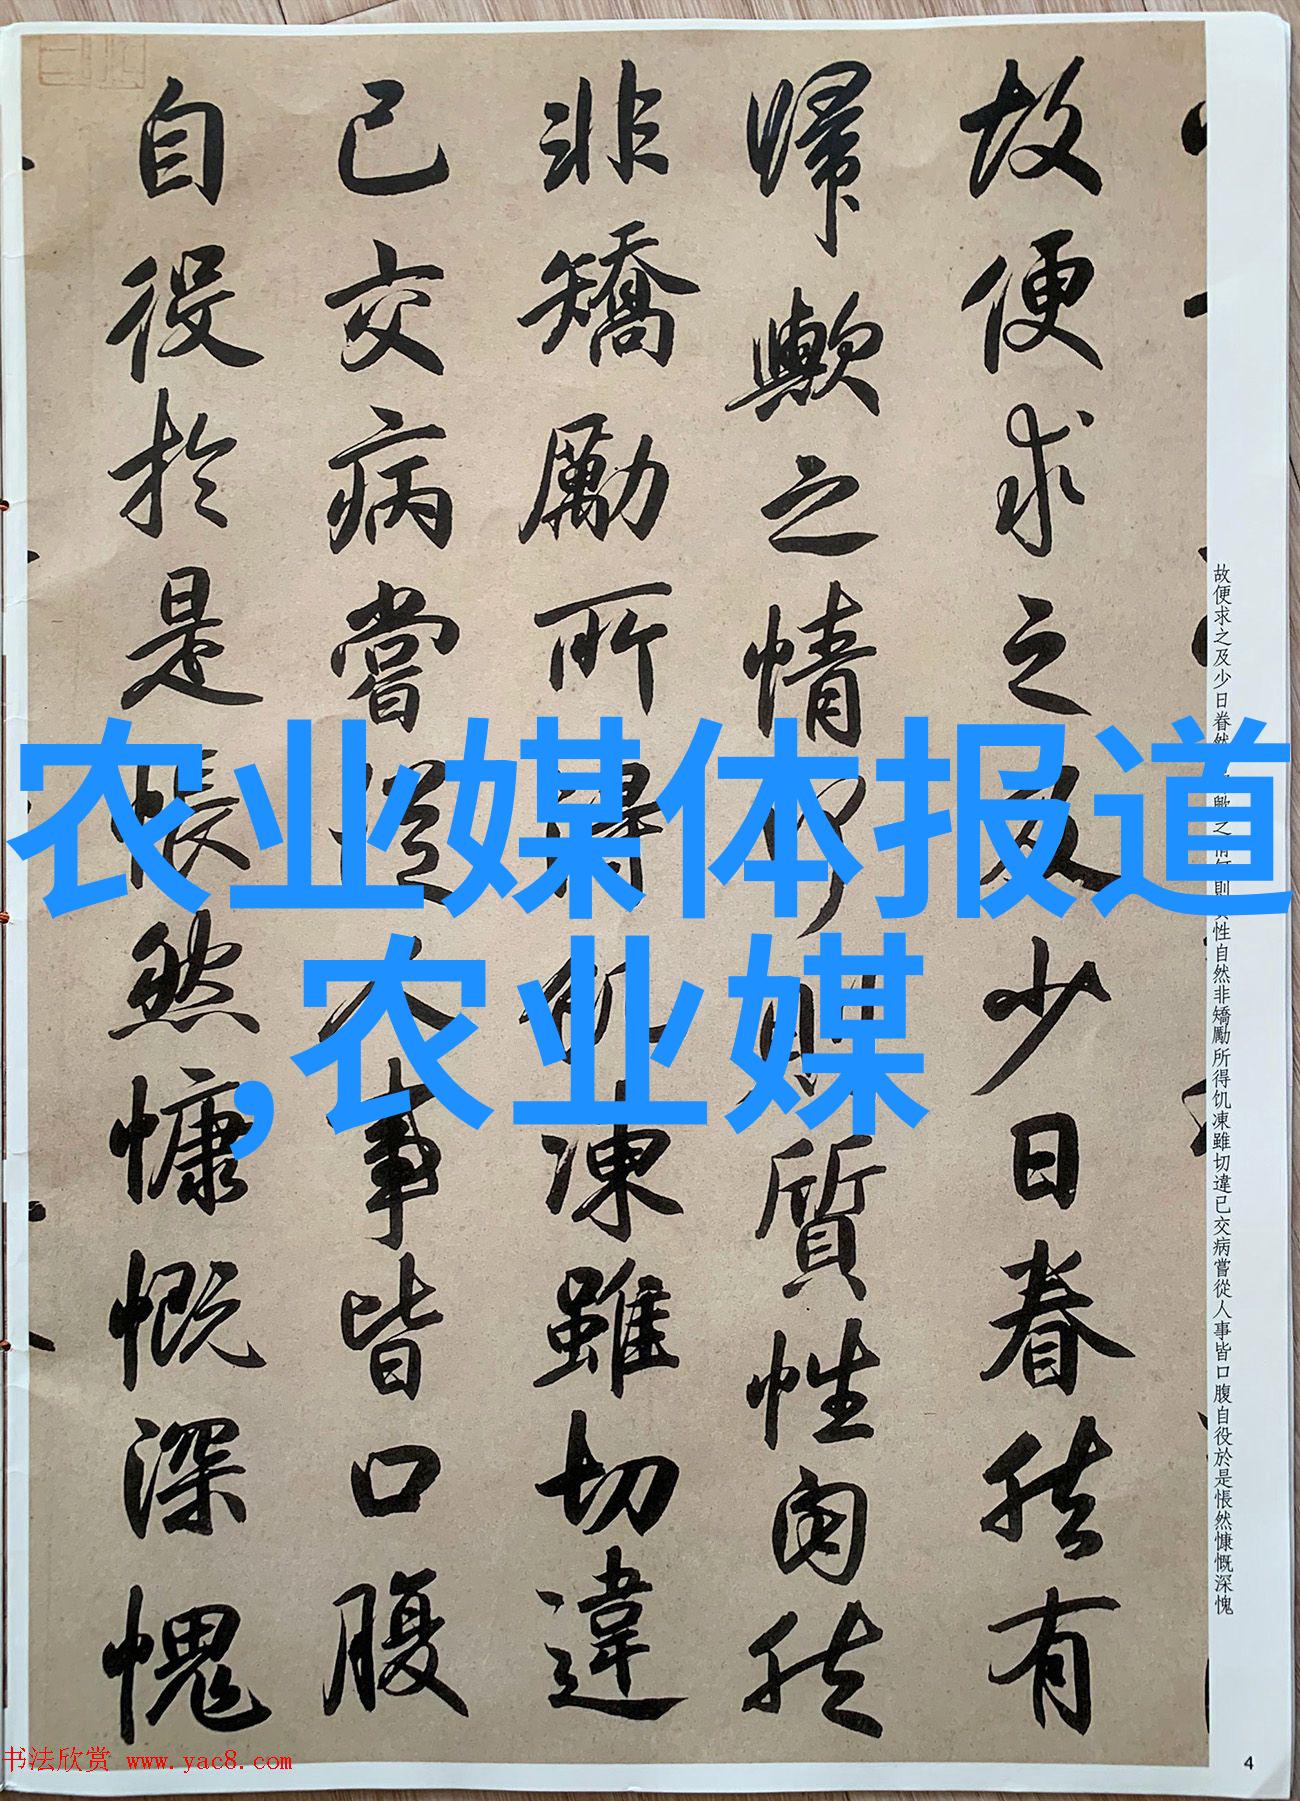 故便求之及少日眷然有
歸歟之情何則質性自然
非矯勵所得飢凍雖切違
已交病嘗從人事皆口腹
自役於是悵然慷慨深愧
故便求之及少日眷然
歟之情何則
性自然非矯勵所得饥凍雖切違已交病嘗從人事皆口腹自役於是悵然慷慨深愧
农业媒体报道
,农业媒
书法欣赏 www.yac8.com
4